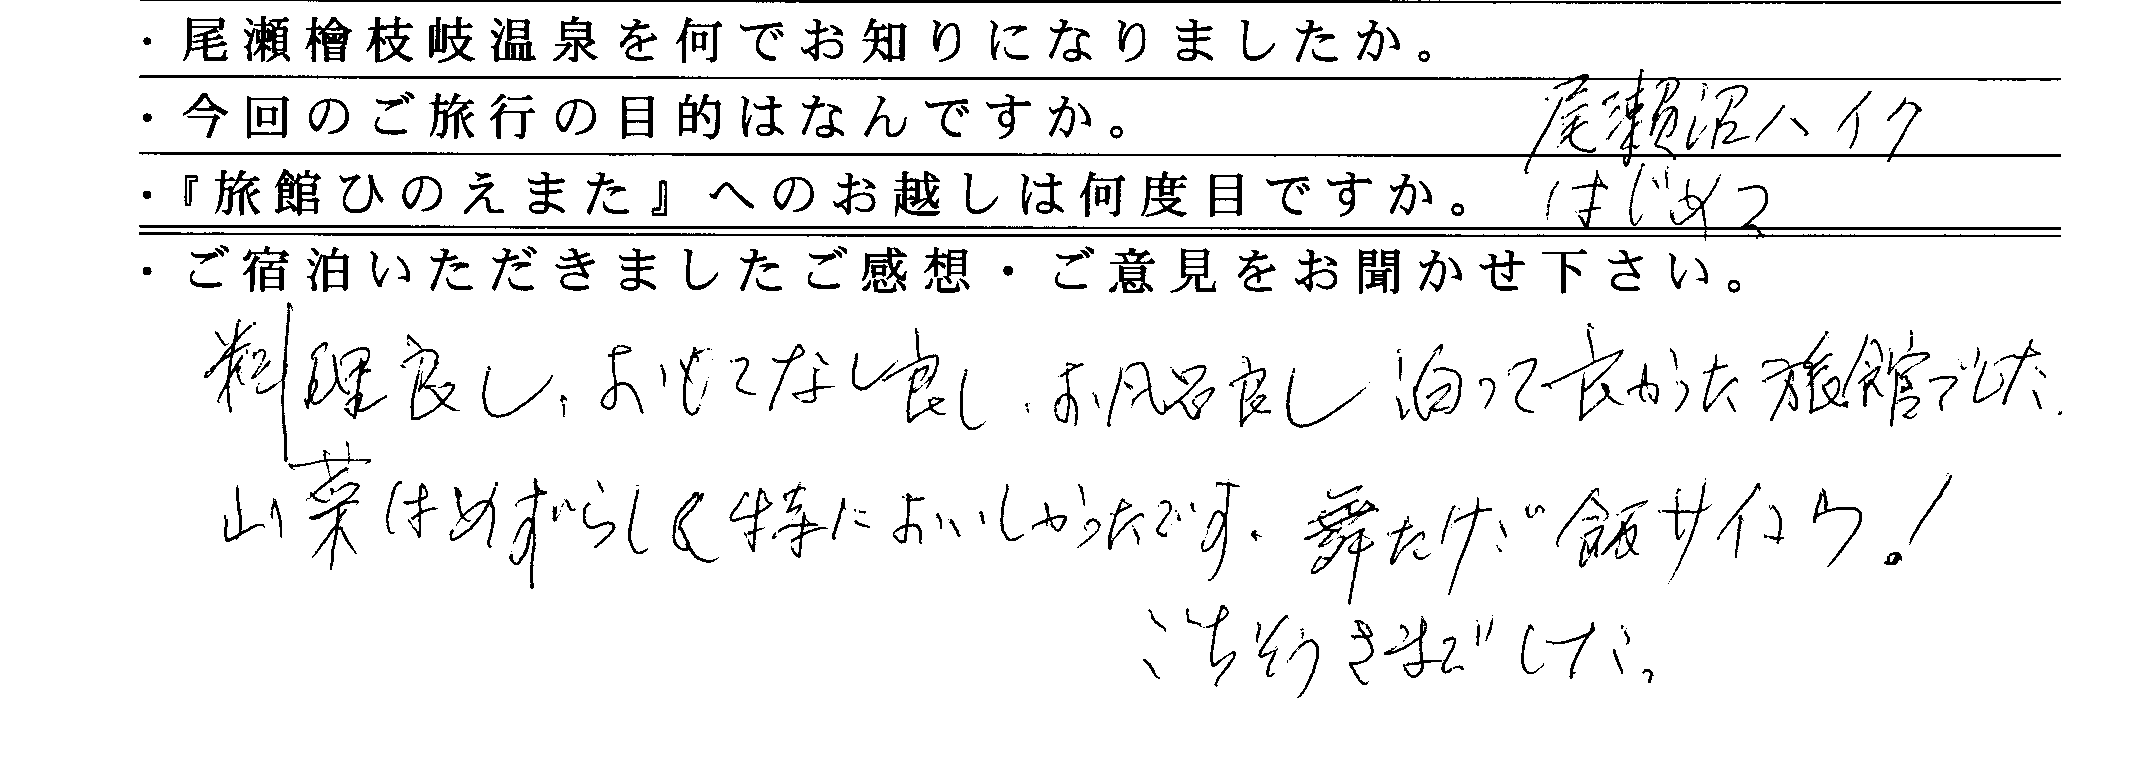 ・尾瀬檜枝岐温泉を何でお知りになりましたか。
・今回のご旅行の目的はなんですか。 尾瀬沼ハイク
・『旅館ひのえまた』へのお越しは何度目ですか。 はじめて
・ご宿泊いただきましたご感想・ご意見をお聞かせ下さい。
料理良し、おもてなし良し、お風呂良し 泊って良かった旅館でした。
山菜はめずらしく特においしかったです。舞たけご飯サイコウ!
ごちそうさまでした。